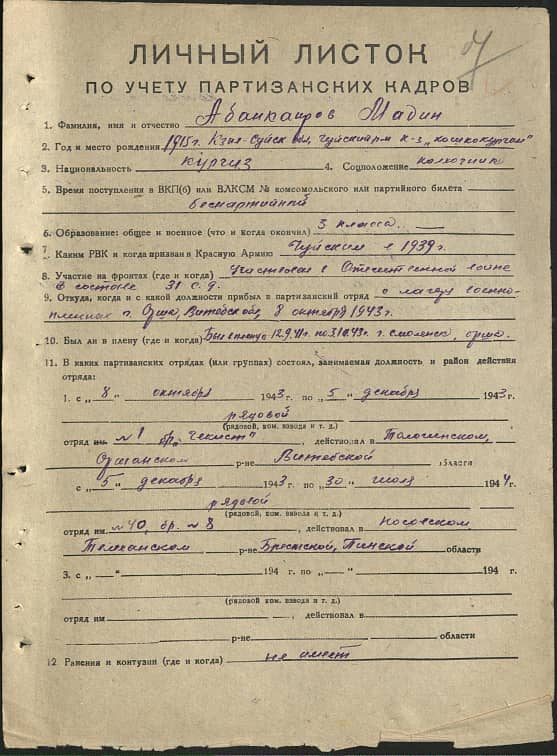 ЛИЧНЫЙ ЛИСТОК
ПО УЧЕТУ ПАРТИЗАНСКИХ КАДРОВ
1. Фамилия, имя и отчество Абанкаиров Мадин
2. Год и место рождения 1915 г. обл, Чуйский к-з „
3. Национальность киргиз 4. Соцположение колхозник
5. Время поступления в ВКП(б) или ВЛКСМ № комсомольского или партийного билета
беспартийный
6. Образование: общее и военное (что и когда окончил) 3 класса
7. Каким РВК и когда призван в Красную Армию Чуйским в 1939 г.
8. Участие на фронтах (где и когда) Участвовал в Отечественной войне
в составе 31 с. д.
9. Откуда, когда и с какой должности прибыл в партизанский отряд с лагеря военно-
пленных г. Орша, Витебской, 8 октября 1943 г.
10. Был ли в плену (где и когда) Был в плену 12.9.41 г. по 3.10.43 г. г. Смоленск, Орша.
11. В каких партизанских отрядах (или группах) состоял, занимаемая должность и район действия
отряда:
1. с „ 8 “ октября 1943 г. по „ 5 “ декабря 1943 г.
рядовой
(рядовой, ком. взвода и т. д.)
отряд им. №1 бр. „Чекист“, действовал в Толочинском,
Оршанском р-не Витебской области
с „ 5 “ декабря 1943 г. по „ 30 “ июля 1944 г.
рядовой
(рядовой, ком. взвода и т. д.)
отряд им №40, бр. №8, действовал в Косовском
Телеханском р-не Брестской, Пинской области
3. с „ “ 194 г. по „ “ 194 г.
(рядовой ком. взвода и т. д.)
отряд им , действовал в
р-не области
12 Ранения и контузии (где и когда) не имеет